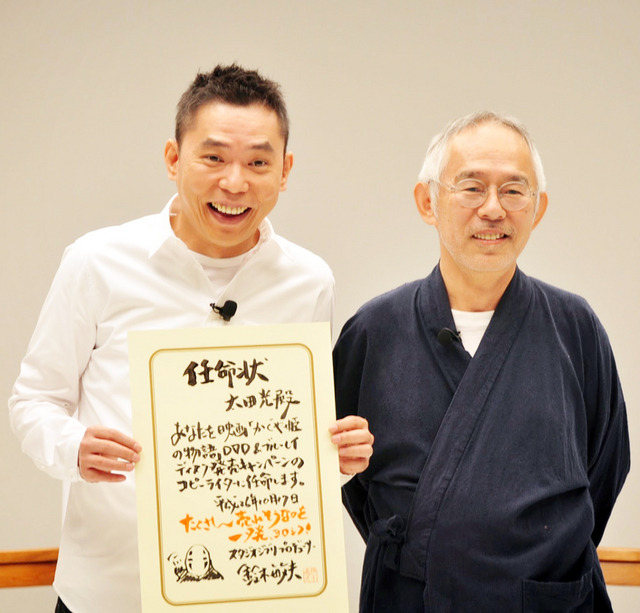 任命状
太田光殿
あなたを映画「かぐや姫
の物語」DVD&ブルーレイ
ディスク発売キャンペーンの
コピーライターに任命します。
平成26年10月17日
たくさん〜売れそうなのを
一発、ヨロシク!
スタジオジブリプロデューサー
鈴木敏夫